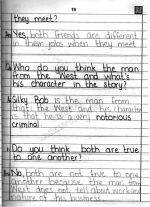 they meet?
Yes, both friends are different
in their jobs when they meet
Who do you think the man
from the West and what's
his character in the story?
Silky Bob is the man from
the West and his
is that he is a very notorious
criminal
Do you think both are true
to one another?
No, both are not true to one
another because the man from
West does not tell about work and
nature of his business.